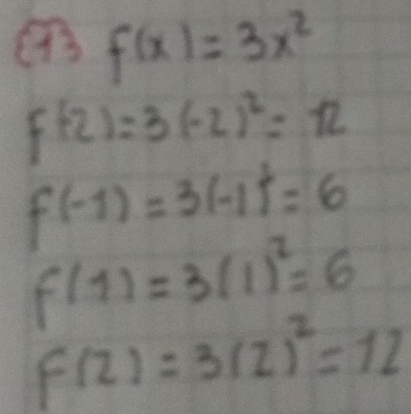 (1) f(x) = 3x²
f(-2) = 3(-2)² = 12
f(-1) = 3(-1)² = 6
f(1) = 3(1)² = 6
f(2) = 3(2)² = 12